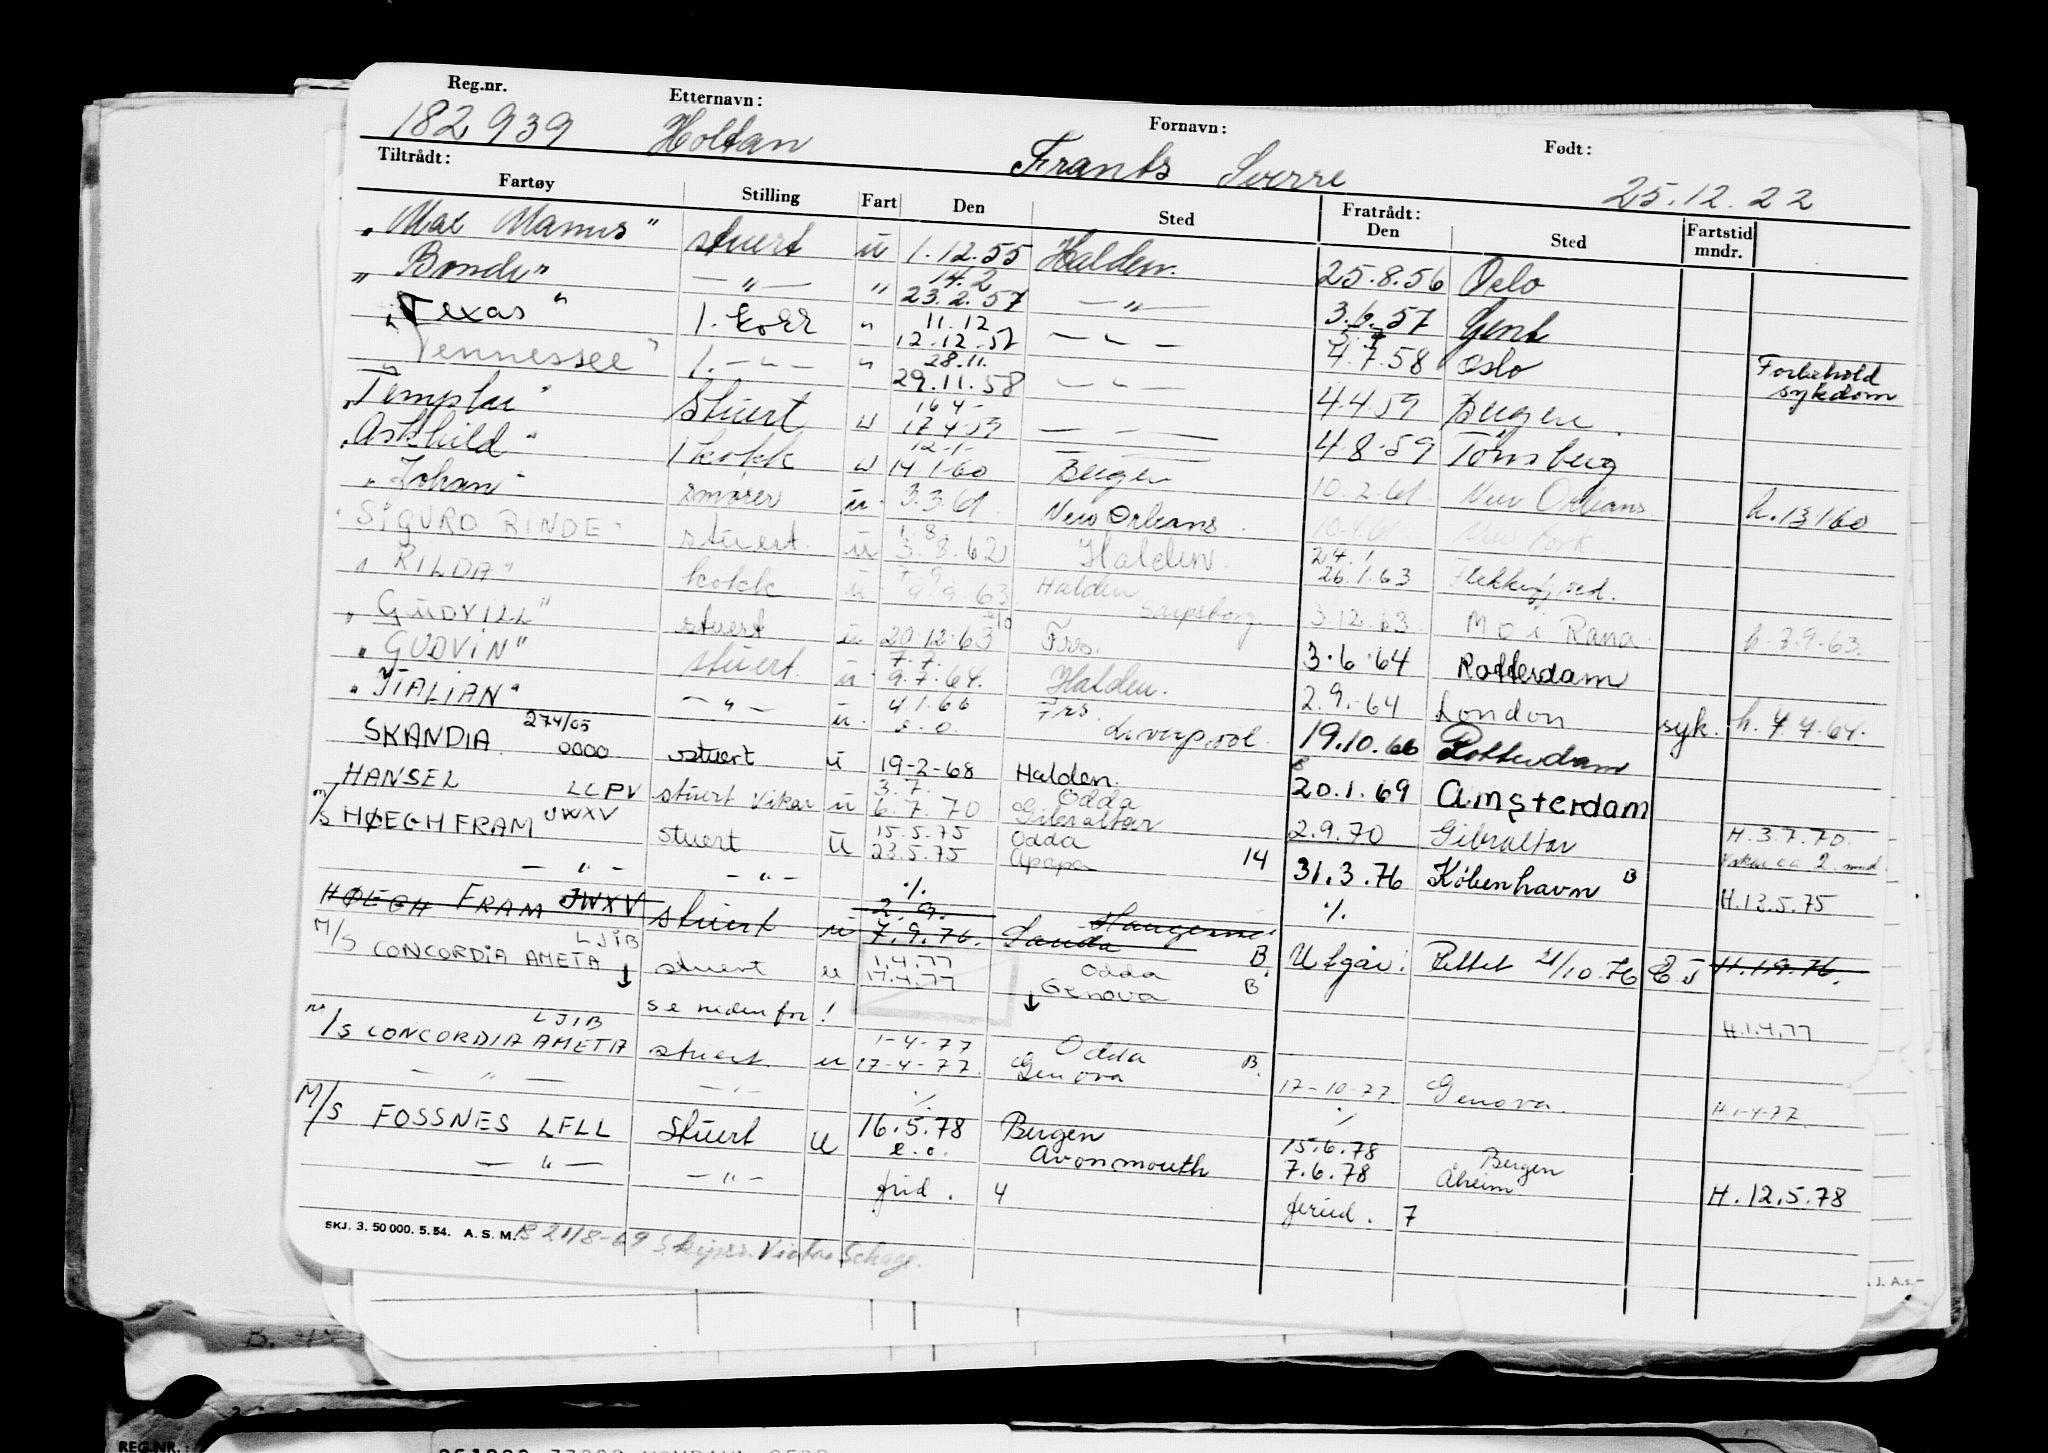 Reg.nr. Etternavn: Fornavn: Født:
182939 Holtan Frants Sverre 25.12.22
Tiltrådt: Fratrådt:
Fartøy Stilling Fart Den Sted Den Sted Fartstid mndr.
"Max Manus" stuert u 1.12.55 Halden. 25.8.56 Oslo
"Bonde" — " — " 14.2 23.2.57 — " — 3.6.57 Gent
"Texas" 1. kokk " 11.12 12.12.57 — " — 4.7.58 Oslo
"Tennessee" 1. — " — " 28.11. 29.11.58 — " — 4.4.59 Bergen Forbehold sykdom
"Templar" Stuert u 16.4 17.4.59 — — — 4.8.59 Tønsberg
"Askhild" 1 kokk u 12.1. 14.1.60 Bergen 10.2.61. New Orleans h. 13.1.60
"Johan" smører u. 3.3.61. New Orleans. 10.4.61. New York
"SIGURD RINDE" stuert. u 1.8. 3.8.62 Halden. 24.1 26.1.63 Flekkefjord.
"RILDA" kokk u 7.9 9.9.63 Halden Sarpsborg. 3.12.63. Mo i Rana. h. 7.9.63.
"GUDVILL" stuert u. 20.12.63 Frs. 3.6.64 Rotterdam
"GUDVIN" stuert. u 7.7. 9.7.64. Halden. 2.9.64 London syk. h. 7.7.64.
"ITALIAN" — " — u. 4.1.66 Frs. Liverpool. 19.10.66 Rotterdam
SKANDIA 274/65 0000 stuert u 19-2-68 Halden. 20.1.69 Amsterdam
HANSEL LCPV stuert Vikar u 3.7. 6.7.70 Odda Gibraltar 2.9.70 Gibraltar H. 3.7.70. Vikar ca 2 mnd.
M/S HØEGH FRAM JWXV stuert u 15.5.75 23.5.75 Odda Apapa 14 31.3.76 København B H.13.5.75
— " — — " — ./. ./.
HØEGH FRAM JWXV stuert u 2.9. 7.9.76. Sauda B Utgår! Rettet 21/10.76 E J H.1.9.76.
M/S CONCORDIA AMETA LJIB stuert u 1.4.77 17.4.77 Odda Genova B. H.1.4.77
↓ se nedenfor! ↓
M/S CONCORDIA AMETA LJIB stuert. u 1-4-77 17-4-77. Odda Genova B. 17-10-77 Genova. H.1-4-77.
— " — — " — ./. ./.
M/S FOSSNES LFLL Stuert u 16.5.78 e.o. Bergen Avonmouth 15.6.78 7.6.78 Bergen Åheim H. 12.5.78
— " — — " — frid. 4 feried. 7
SKJ. 3. 50 000. 5. 54. A. S. M. B 21/8-69
J. A.s.
REG.NR.: